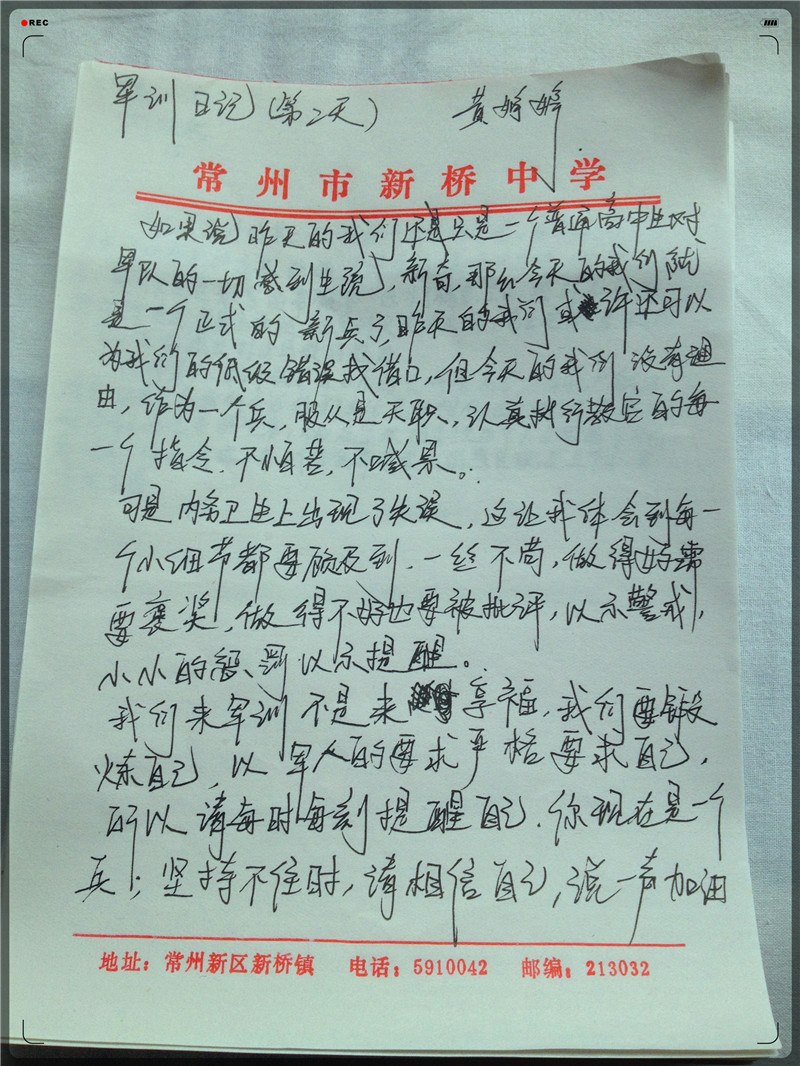 REC
军训日记(第二天) 黄婷婷
常州市新桥中学
如果说昨天的我们还是只是一个普通高中生对
军队的一切感到生疏,新奇,那么今天的我们就
是一个正式的新兵了,昨天的我们或许还可以
为我们的低级错误找借口,但今天的我们没有理
由,作为一个兵,服从是天职,认真执行教官的每
一个指令.不怕苦,不喊累。
可是内务卫生上出现了失误,这让我体会到每一
个小细节都要顾及到.一丝不苟,做得好需
要褒奖,做得不好也要被批评,以示警戒,
小小的惩罚以示提醒。
我们来军训不是来享福,我们要锻
炼自己,以军人的要求严格要求自己,
所以请每时每刻提醒自己.你现在是一个
兵;坚持不住时,请相信自己,说一声加油
地址:常州新区新桥镇 电话:5910042 邮编:213032